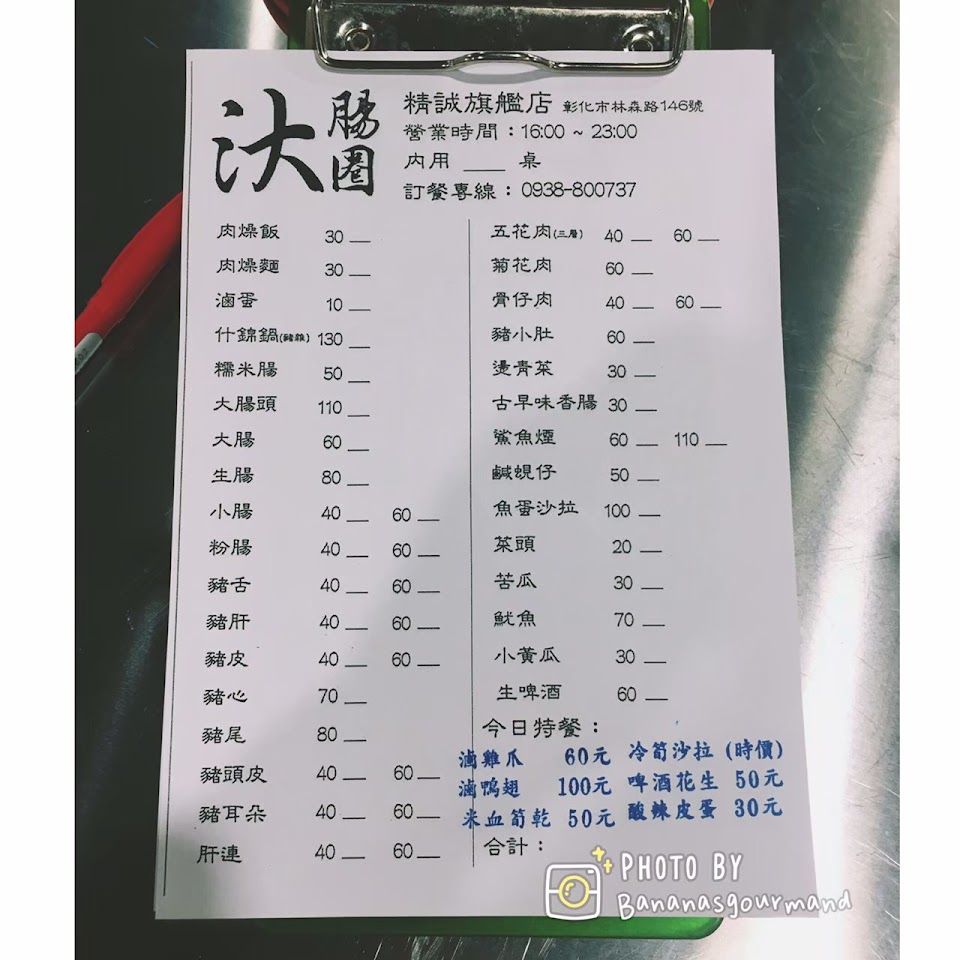 汏腸圈
精誠旗艦店 彰化市林森路146號
營業時間：16:00 ~ 23:00
內用 ___ 桌
訂餐專線：0938-800737
肉燥飯 30 __
肉燥麵 30 __
滷蛋 10 __
什錦鍋(豬雜) 130 __
糯米腸 50 __
大腸頭 110 __
大腸 60 __
生腸 80 __
小腸 40 __ 60 __
粉腸 40 __ 60 __
豬舌 40 __ 60 __
豬肝 40 __ 60 __
豬皮 40 __ 60 __
豬心 70 __
豬尾 80 __
豬頭皮 40 __ 60 __
豬耳朵 40 __ 60 __
肝連 40 __ 60 __
五花肉(三層) 40 __ 60 __
菊花肉 60 __
骨仔肉 40 __ 60 __
豬小肚 60 __
燙青菜 30 __
古早味香腸 30 __
鯊魚煙 60 __ 110 __
鹹蜆仔 50 __
魚蛋沙拉 100 __
菜頭 20 __
苦瓜 30 __
魷魚 70 __
小黃瓜 30 __
生啤酒 60 __
今日特餐：
滷雞爪 60元 冷筍沙拉 (時價)
滷鴨翅 100元 啤酒花生 50元
米血筍乾 50元 酸辣皮蛋 30元
合計：
PHOTO BY
Bananasgourmand